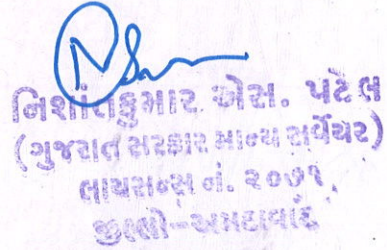 નિશાંતકુમાર એસ. પટેલ
(ગુજરાત સરકાર માન્ય સર્વેયર)
લાયસન્સ નં. ૨૦૭૧
જીલ્લો-અમદાવાદ